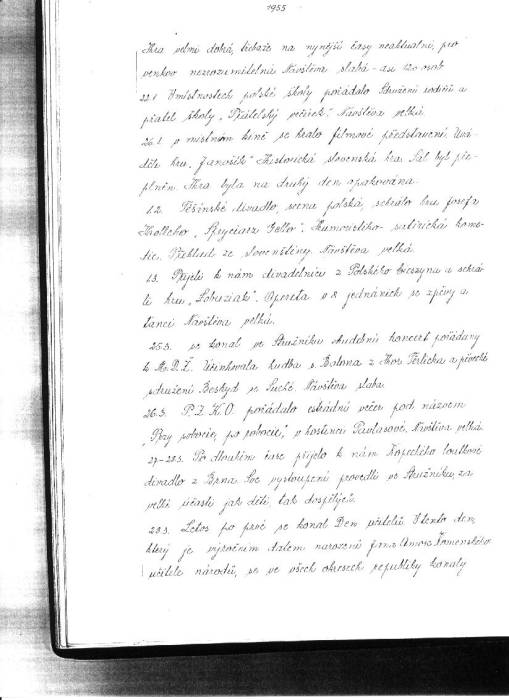 1955
Hra velmi dobrá, třebaže na nynější časy neaktuelní, pro
venkov nesrozumitelná Návštěva slabá - asi 120 osob
22.1 V místnostech polské školy pořádalo Sdružení rodičů a
přátel školy „Přátelský večírek". Návštěva velká
26.1. v místním kině se hrálo filmové představení. Uvá-
děli hru „Janošík" Historická slovenská hra. Sál byl pře-
plněn. Hra byla na druhý den opakována.
1.2. Těšínské divadlo, scena polská, sehrálo hru Josefa
Hollecho „Geller". Humoristicko-satirická kome-
die. Překlad ze slovenštiny. Návštěva velká.
1.3. Přijeli k nám divadelníci z Polského Cieszyna a sehrá-
li hru „Lobuziak". Opereta v 8 jednáních se zpěvy a
tanci Návštěva velká.
25.3. se konal ve Stružníku hudební koncert pořádaný
k M.D.Ž. Účinkovala hudba s. Balona z Hor. Těrlicka a pěvecké
sdružení Beskyd se Suché. Návštěva slabá.
26.3. P.Z.K.O. pořádalo estrádní večer pod názvem
„Przy robocie, po robocie", v hostinci Pavlasové. Návštěva velká
27-28.3. Po dlouhém čase přijelo k nám Kopeckého loutkové
divadlo z Brna. Své vystoupení provedli ve Stružníku, za
velké účasti jak dětí, tak dospělých.
28.3. Letos po prvé se konal Den učitelů. V tento den,
který je výročním datem narození Jana Amose Komenského
učitele národů, se ve všech okresech republiky konaly